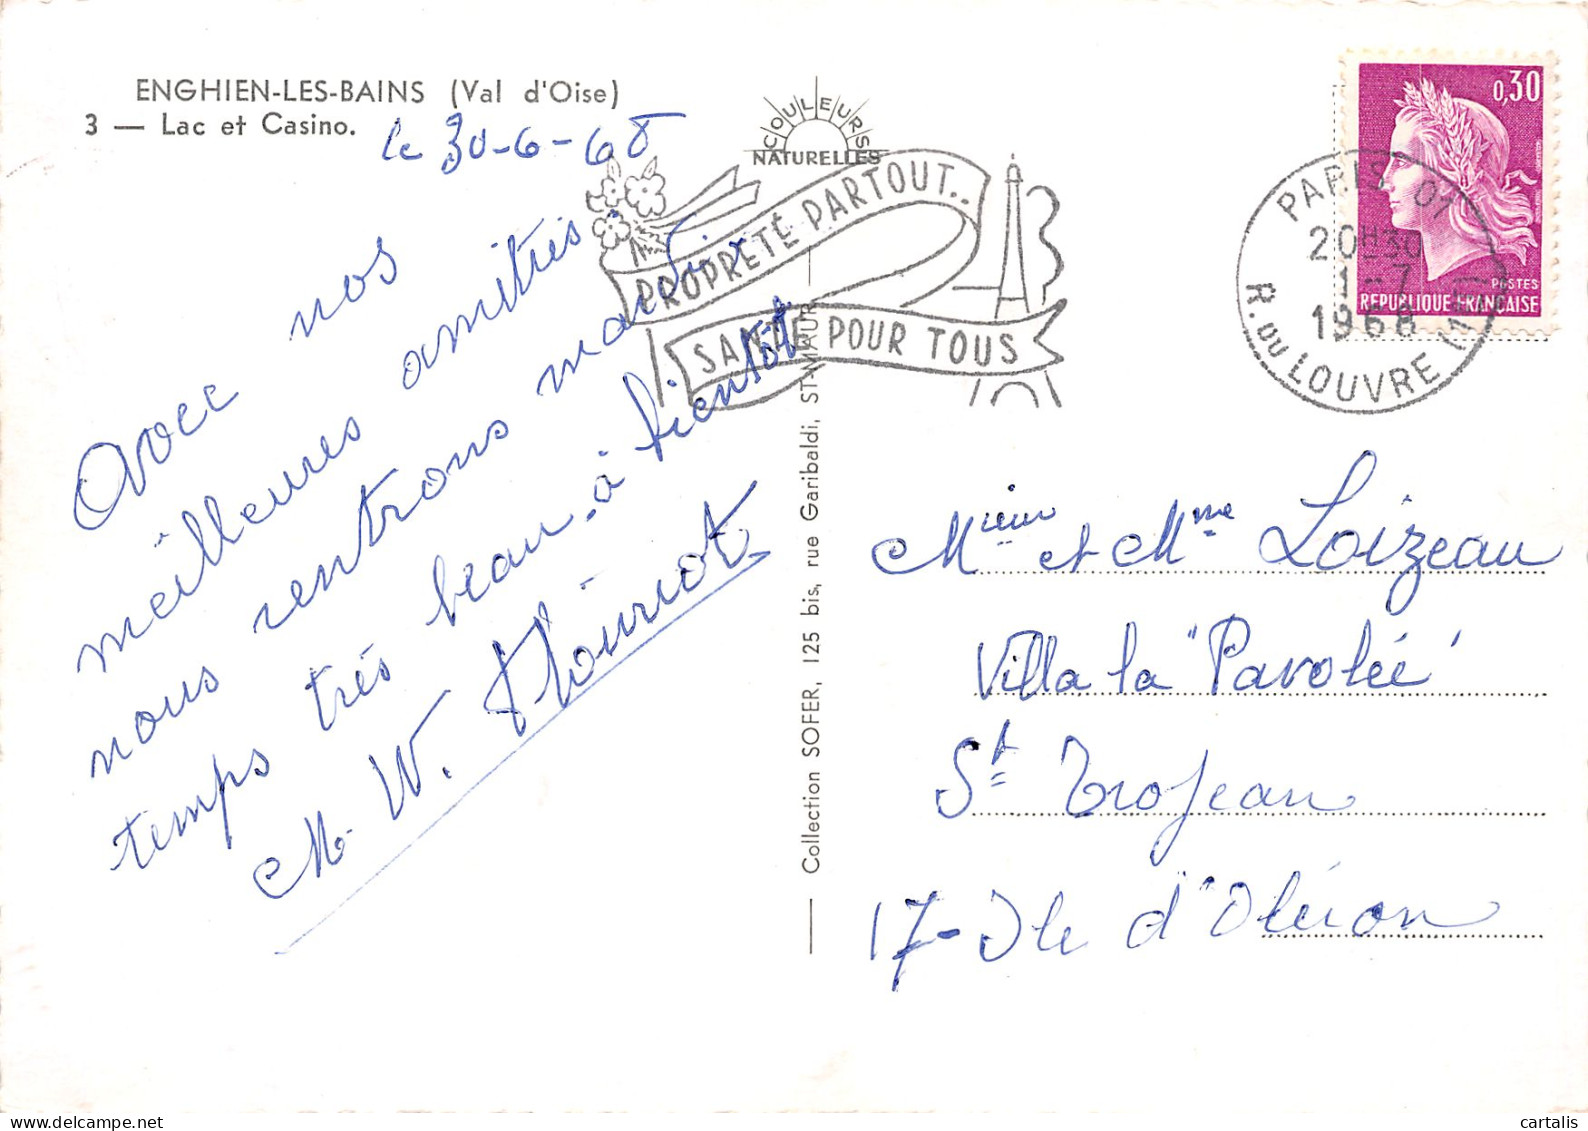 ENGHIEN-LES-BAINS (Val d'Oise)
3 — Lac et Casino.
le 30-6-68
Avec nos
meilleures amitiés
nous rentrons mardi
temps très beau. à bientôt
M. W. Thouriot
COULEURS
NATURELLES
PROPRETÉ PARTOUT..
SANTÉ POUR TOUS
Collection SOFER, 125 bis, rue Garibaldi, ST-MAUR
0,30
POSTES
REPUBLIQUE FRANÇAISE
PARIS 01
20H30
1-7
1968
R. DU LOUVRE (1er)
Mieur et Mme Loizeau
Villa la "Pavolée"
St Trojean
17-Ile d'Oléron
cartalis